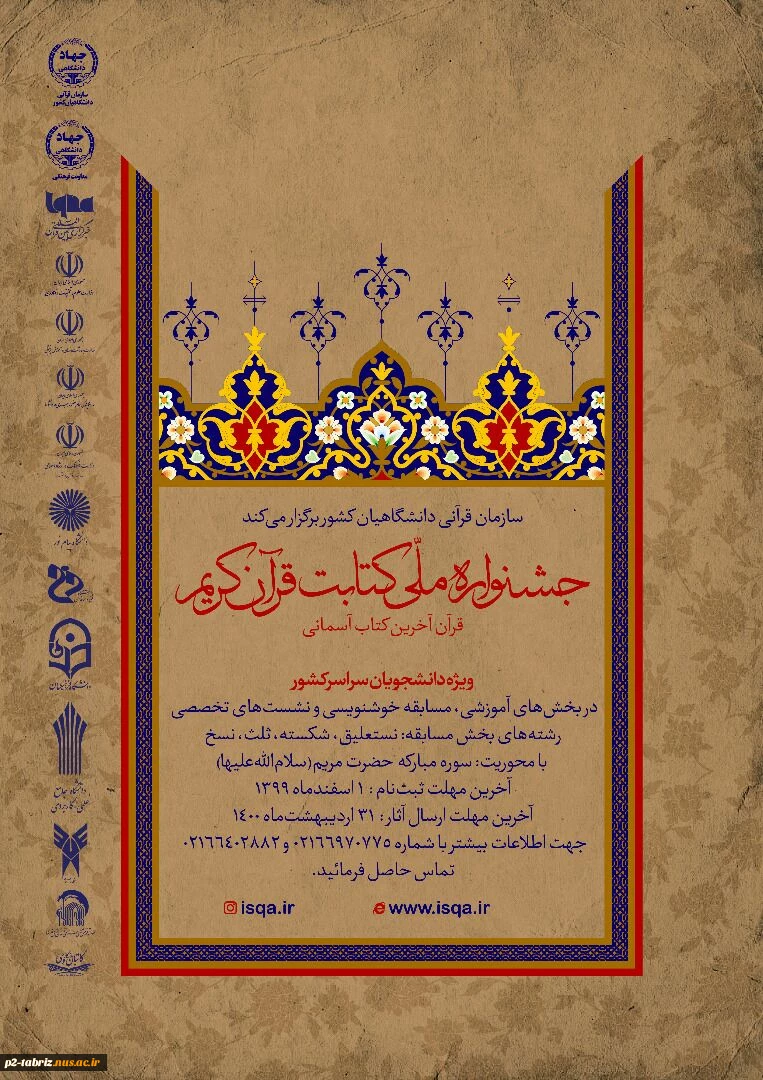 جهاد
دانشگاهی
سازمان قرآنی
دانشگاهیان کشور
جهاد
دانشگاهی
معاونت فرهنگی
iqna
دانشگاه پیام نور
دانشگاه فرهنگیان
دانشگاه جامع
علمی کاربردی
سازمان قرآنی دانشگاهیان کشور برگزار می‌کند
جشنواره ملّی کتابت قرآن کریم
قرآن آخرین کتاب آسمانی
ویژه دانشجویان سراسر کشور
در بخش‌های آموزشی، مسابقه خوشنویسی و نشست‌های تخصصی
رشته‌های بخش مسابقه: نستعلیق، شکسته، ثلث، نسخ
با محوریت: سوره مبارکه حضرت مریم (سلام‌الله‌علیها)
آخرین مهلت ثبت‌نام : ۱ اسفندماه ۱۳۹۹
آخرین مهلت ارسال آثار : ۳۱ اردیبهشت‌ماه ۱۴۰۰
جهت اطلاعات بیشتر با شماره ۰۲۱۶۶۹۷۰۷۷۵ و ۰۲۱۶۶۴۰۲۸۸۲
تماس حاصل فرمائید.
isqa.ir www.isqa.ir
p2-tabriz.nus.ac.ir